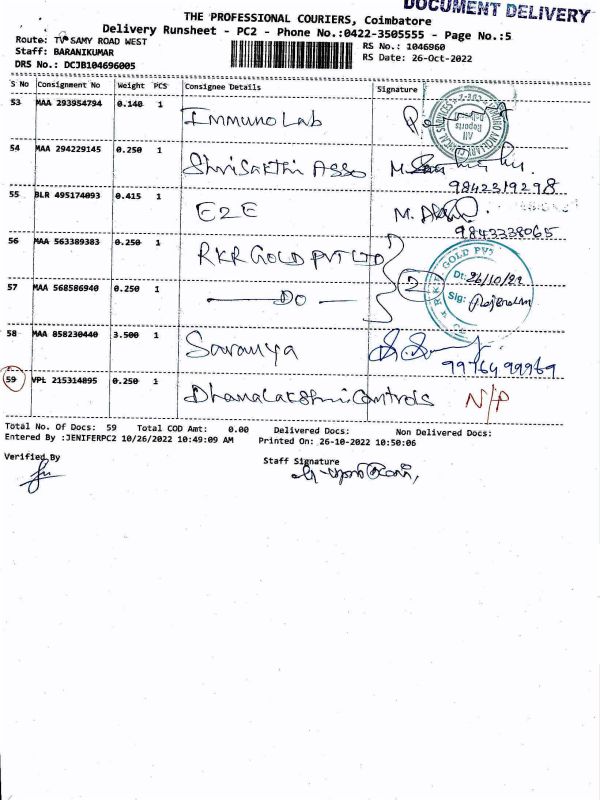 DOCUMENT DELIVERY
THE PROFESSIONAL COURIERS, Coimbatore
Delivery Runsheet - PC2 - Phone No.:0422-3505555 - Page No.:5
Route: TV SAMY ROAD WEST
RS No.: 1046960
Staff: BARANIKUMAR
RS Date: 26-Oct-2022
DRS No.: DCJB104696005
S No Consignment No Weight PCS Consignee Details Signature
53 MAA 293954794 0.140 1 Immuno Lab
All Reports
54 MAA 294229145 0.250 1 Shri Sakthi Asso
9842319298
55 BLR 495174093 0.415 1 E2E
9843338065
56 MAA 563389383 0.250 1 RKR GOLD PVT LTD
GOLD PVT
Dt: 26/10/22
2
Sig:
57 MAA 568586940 0.250 1 — DO —
58 MAA 858230440 3.500 1 Saranya
9976499969
59 VPL 215314895 0.250 1 Dhanalakshmi Controls N/P
Total No. Of Docs: 59 Total COD Amt: 0.00 Delivered Docs: Non Delivered Docs:
Entered By :JENIFERPC2 10/26/2022 10:49:09 AM Printed On: 26-10-2022 10:50:06
Verified By
Staff Signature